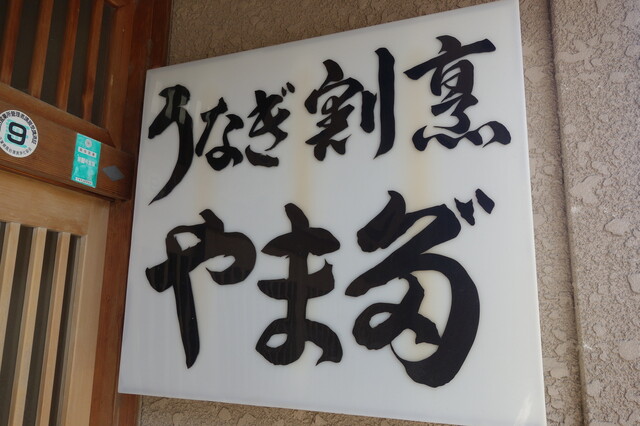 うなぎ割烹
やまだ
9